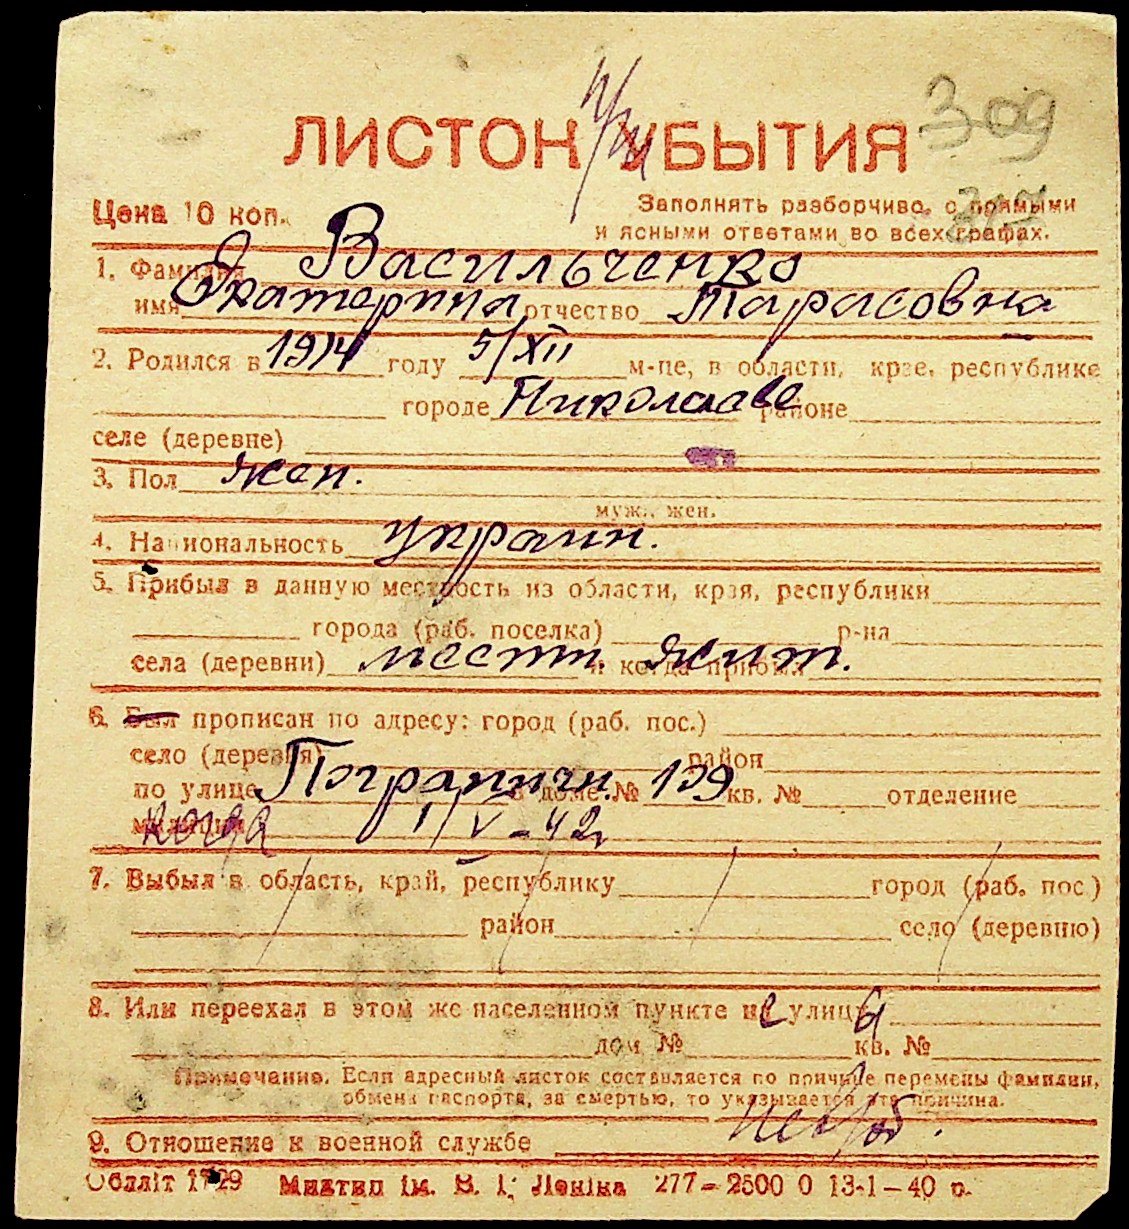 309
ЛИСТОК УБЫТИЯ
Цена 10 коп.
Заполнять разборчиво, с прямыми
и ясными ответами во всех графах.
317
1. Фамилия Васильченко
имя Екатерина отчество Тарасовна
2. Родился в 1914 году 5/XII м-це, в области, крае, республике
городе Николаеве районе
селе (деревне)
3. Пол жен.
муж., жен.
4. Национальность украин.
5. Прибыл в данную местность из области, края, республики
города (раб. поселка) р-на
села (деревни) местн. жит. и когда прибыл
6. Был прописан по адресу: город (раб. пос.)
село (деревня) район
по улице Пограничн. в доме № 109 кв. № отделение
милиции когда 1/V-42
7. Выбыл в область, край, республику город (раб. пос.)
район село (деревню)
8. Или переехал в этом же населенном пункте на улицу
дом № кв. №
Примечание. Если адресный листок составляется по причине перемены фамилии,
обмена паспорта, за смертью, то указывается эта причина.
9. Отношение к военной службе
Обллiт 1729 Миктип iм. В. I. Ленiна 277—2500 0 13-1—40 р.